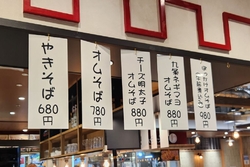 やきそば
680円
オムそば
780円
チーズ明太子
オムそば
880円
九条ネギマヨ
オムそば
880円
980円